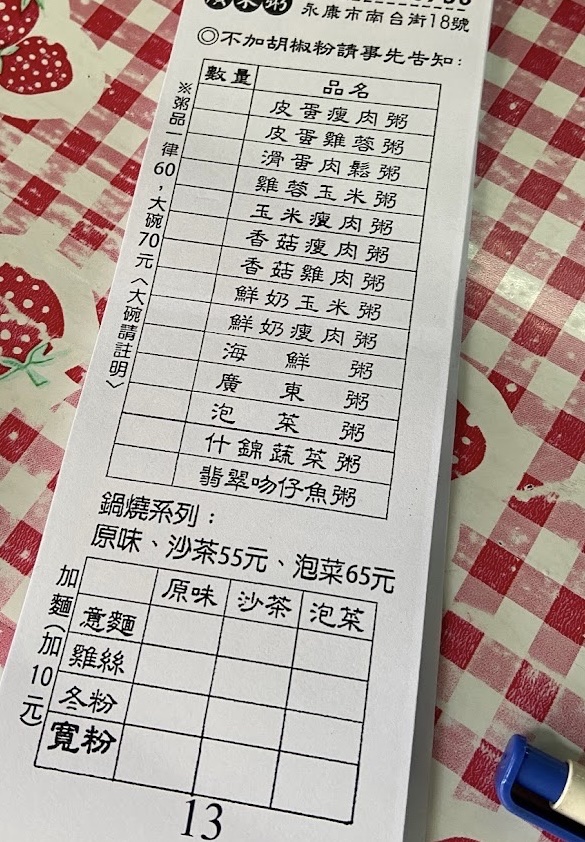 永康市南台街18號
◎不加胡椒粉請事先告知:
數量 品名
皮蛋瘦肉粥
皮蛋雞蓉粥
滑蛋肉鬆粥
雞蓉玉米粥
玉米瘦肉粥
香菇瘦肉粥
香菇雞肉粥
鮮奶玉米粥
鮮奶瘦肉粥
海鮮粥
廣東粥
泡菜粥
什錦蔬菜粥
翡翠吻仔魚粥
※粥品一律60，大碗70元〈大碗請註明〉
鍋燒系列：
原味、沙茶55元、泡菜65元
原味 沙茶 泡菜
意麵
雞絲
冬粉
寬粉
加麵(加10元)
13